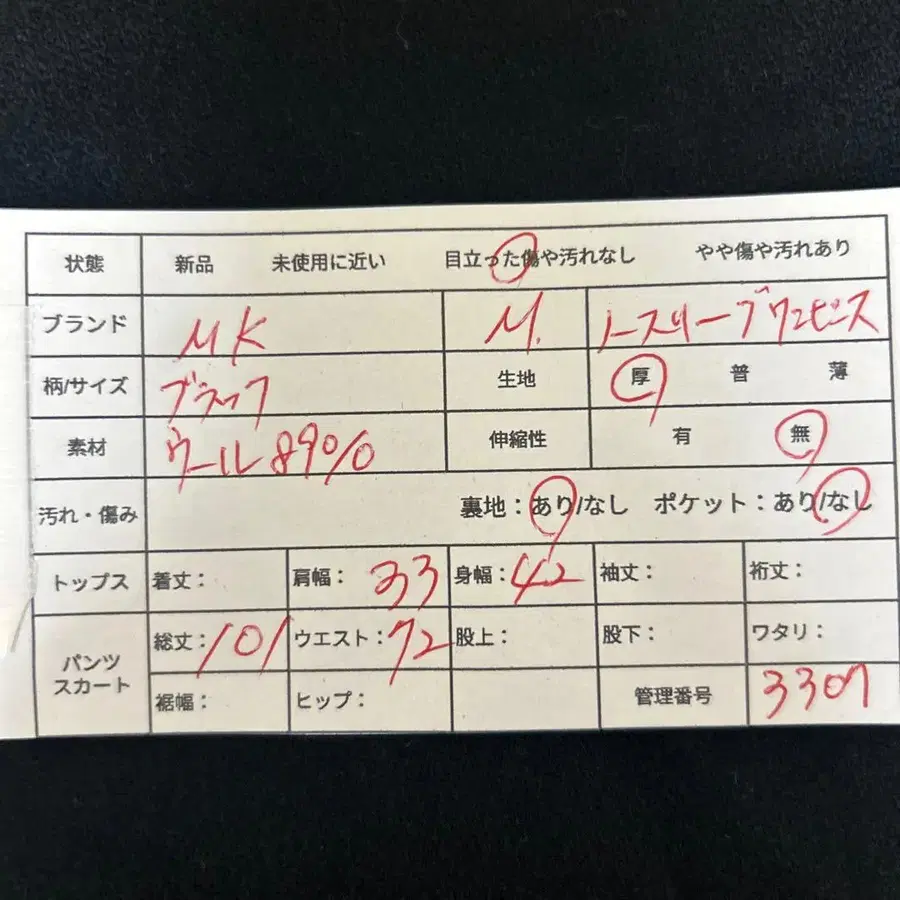 状態 新品 未使用に近い 目立った傷や汚れなし やや傷や汚れあり
ブランド MK M. ノースリーブワンピース
柄/サイズ ブラック 生地 厚 普 薄
素材 ウール89% 伸縮性 有 無
汚れ・傷み 裏地：あり/なし ポケット：あり/なし
トップス 着丈： 肩幅： 33 身幅： 42 袖丈： 裄丈：
パンツ スカート 総丈： 101 ウエスト： 72 股上： 股下： ワタリ：
裾幅： ヒップ： 管理番号 3307